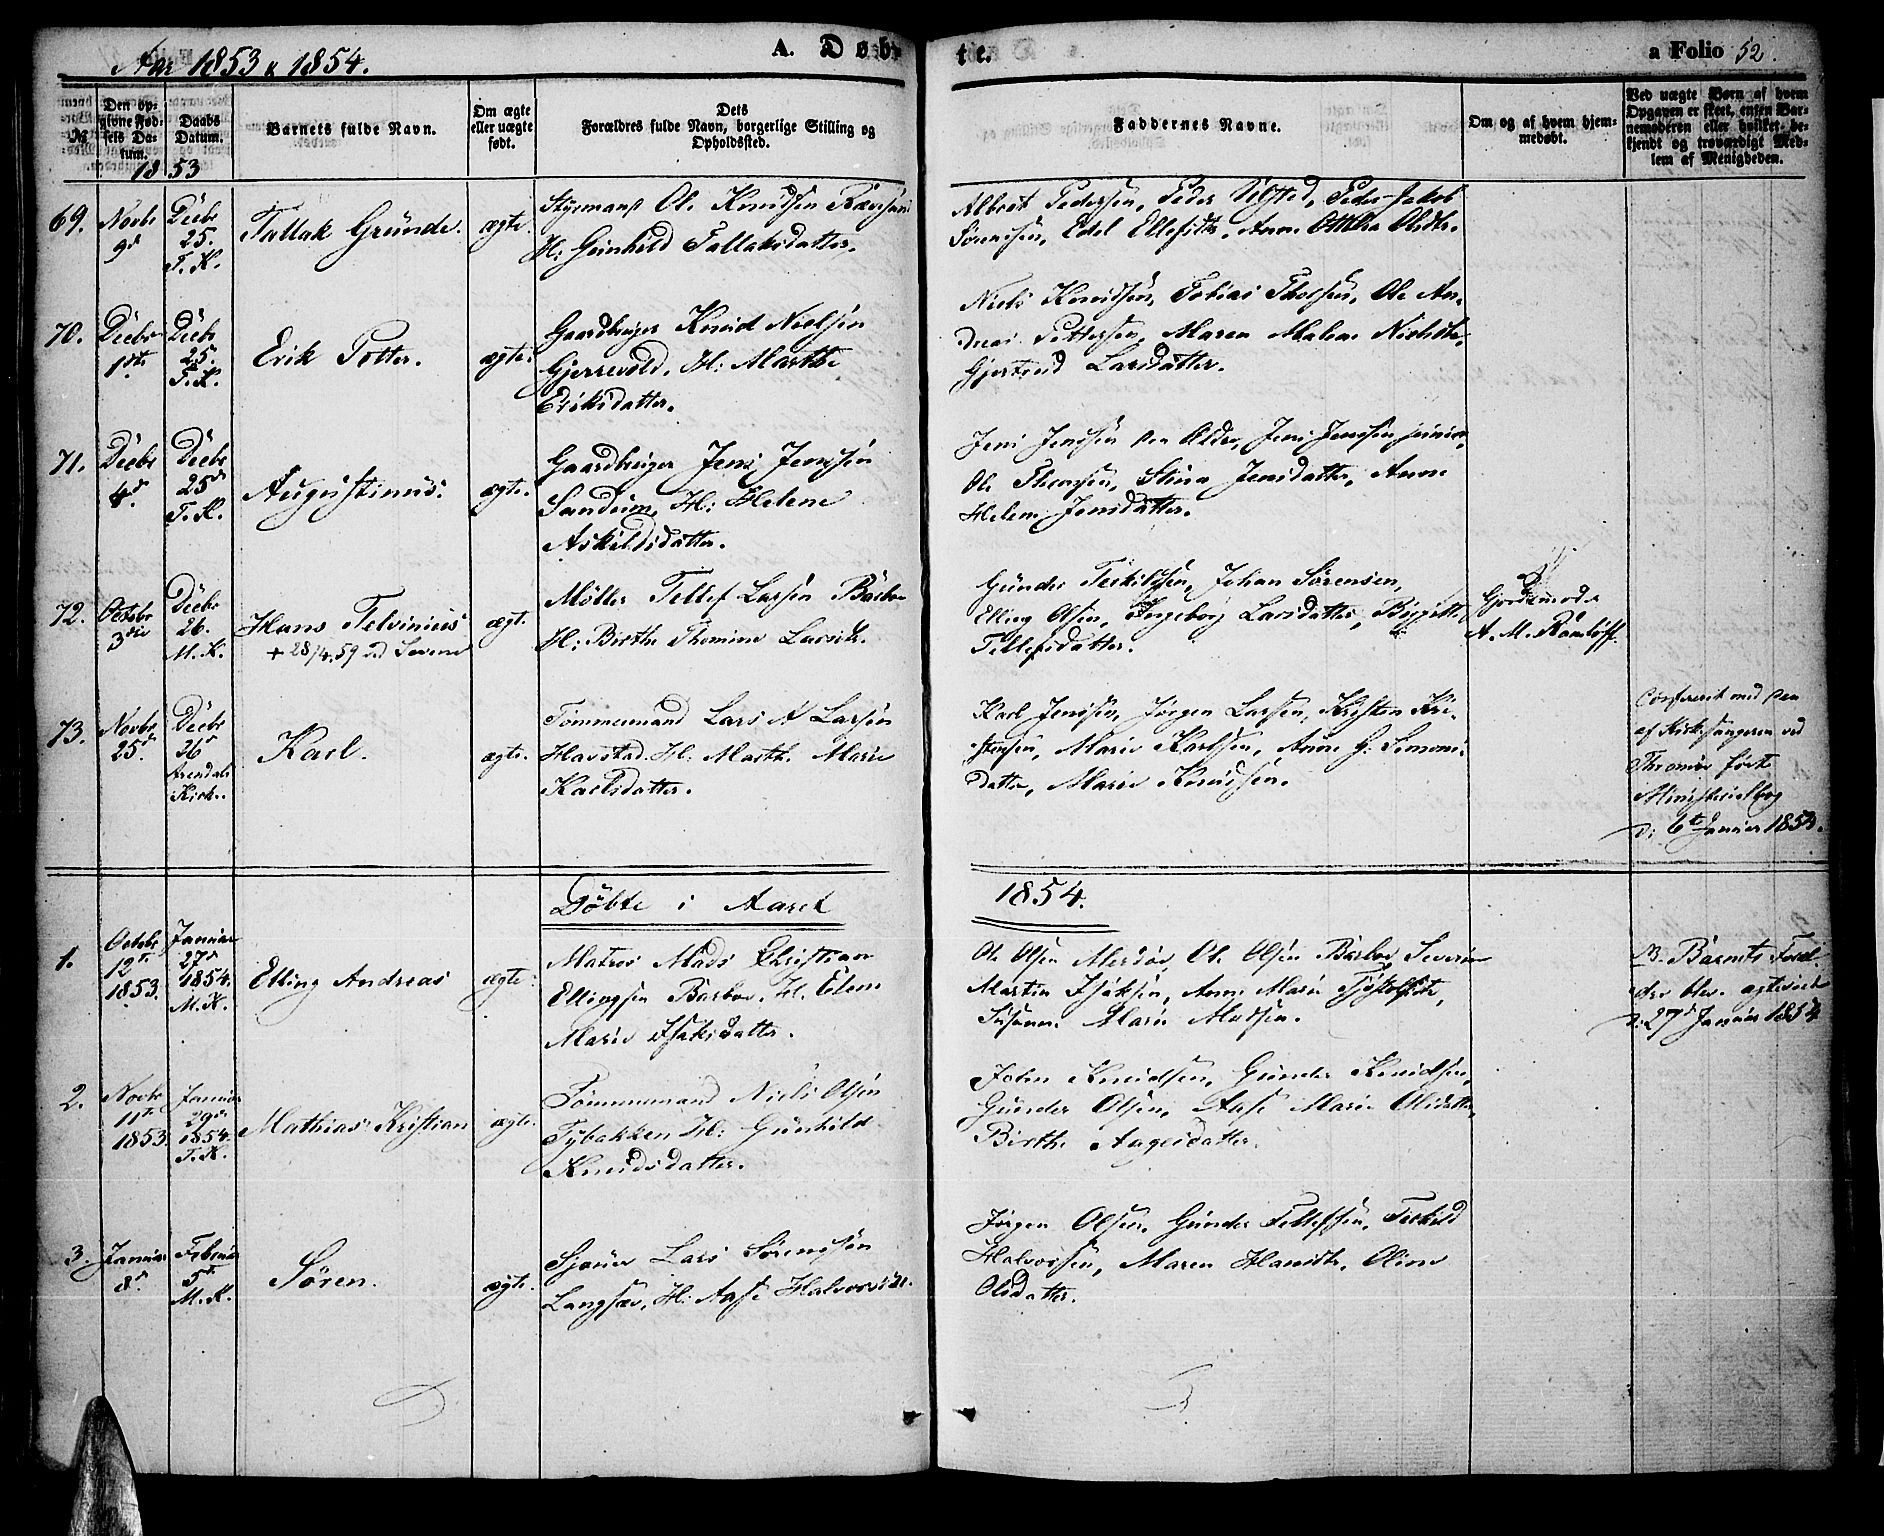 Aar 1853 & 1854.
A. Døb-
te.
a Folio 52.
No
Den op-
givne Fød-
sels Da-
tum.
Daabs
Datum.
Barnets fulde Navn.
Om ægte
eller uægte
født.
Dets
Forældres fulde Navn, borgerlige Stilling og
Opholdssted.
Faddernes Navne.
Om og af hvem hjem-
medøbt.
Ved uægte Børn af hvem
Opgaven er skeet, enten Bar-
nemoderen eller hvilket be-
kjendt og troværdigt Med-
lem af Menigheden.
1853
69.
Novbr
9d
Decbr
25.
T. K.
Tallak Gründe.
ægte.
Styrmand Ole Knudsen
H: Gunhild Tallaksdatter.
Albret Pedersen, Peder Peder Jakob
Sørensen, Edel Ellefsdtr, Anne Oldtr.
70.
Decbr
1ste
Decbr
25.
T. K.
Erik Potter.
ægte.
Gaardbruger Knud Nielsen
Gjerrevold. H: Marthe
Eriksdatter.
Niels Knudsen, Tobias Ole An-
dreas Pettersen, Maren Malene
Gjertrud Larsdatter.
71.
Decbr
4d
Decbr
25d
T. K.
Augustinus.
ægte.
Gaardbruger Jens Jensen
Sandum, H: Helene
Askildsdatter.
Jens Jenssen den Ældre, Jens Jenssen junior,
Ole Stina Jensdatter, Anne
Helene Jensdatter.
72.
Octobr
3die
Decbr
26.
M. K.
Hans Telvinius
+ 28/4.59 ved Severn
ægte.
Møller Tellef Larsen Barbo
H: Birthe Thomine Larsdtr.
Gunder Terkildsen, Johan Sørensen,
Elling Olsen, Ingeborg Larsdatter, Birgitte
Tellefsdatter.
Gjordemoder
A. M. Rømloff.
73.
Novbr
25d
Decbr
26d
Arendals
Kirke.
Karl.
ægte.
Tømmermand Lars A Larsen
Havstad. H: Marthe Marie
Karlsdatter.
Karl Jensen, Jørgen Larsen, Kristen Kri-
stensen, Marie Karlsen, Anne G. Simons-
datter, Marie Knudsen.
Confereret med den
af Kirkesangeren ved
Tromøe førte
Ministerialbog
D: 6t Januar 1854.
Döbte i Aaret
1854.
1.
Octobr
12te
1853.
Januar
27d
1854.
M. K.
Elling Andreas
ægte.
Matros Mads Christian
Ellingsen Barbo. H. Elen
Marie Isaksdatter.
Ole Olsen Merdøe, Ole Olsen Barbo, Severin
Martin Isaksen, Anne Marie
Susanne Marie Madsen.
NB. Barnets Foræl-
dre blev ægteviede
D: 27d Januar 1854
2.
Novbr
11te
1853.
Januar
29de
1854.
T. K.
Mathias Kristian
ægte.
Tømmermand Niels Olsen
Tybakken H: Gunhild
Knudsdatter.
John Knudsen, Gunder Knudsen,
Gunder Olsen, Aase Marie Olsdatter,
Birthe Aagesdatter.
3.
Januar
8d
Februar
5te
M. K.
Søren.
ægte.
Skipper Lars Sørensen
Langsæe, H: Aase Halvorsdtr.
Jørgen Olsen, Gunder Tellefsen, Terkild
Halvorsen, Maren Hansdtr, Oline
Olsdatter.